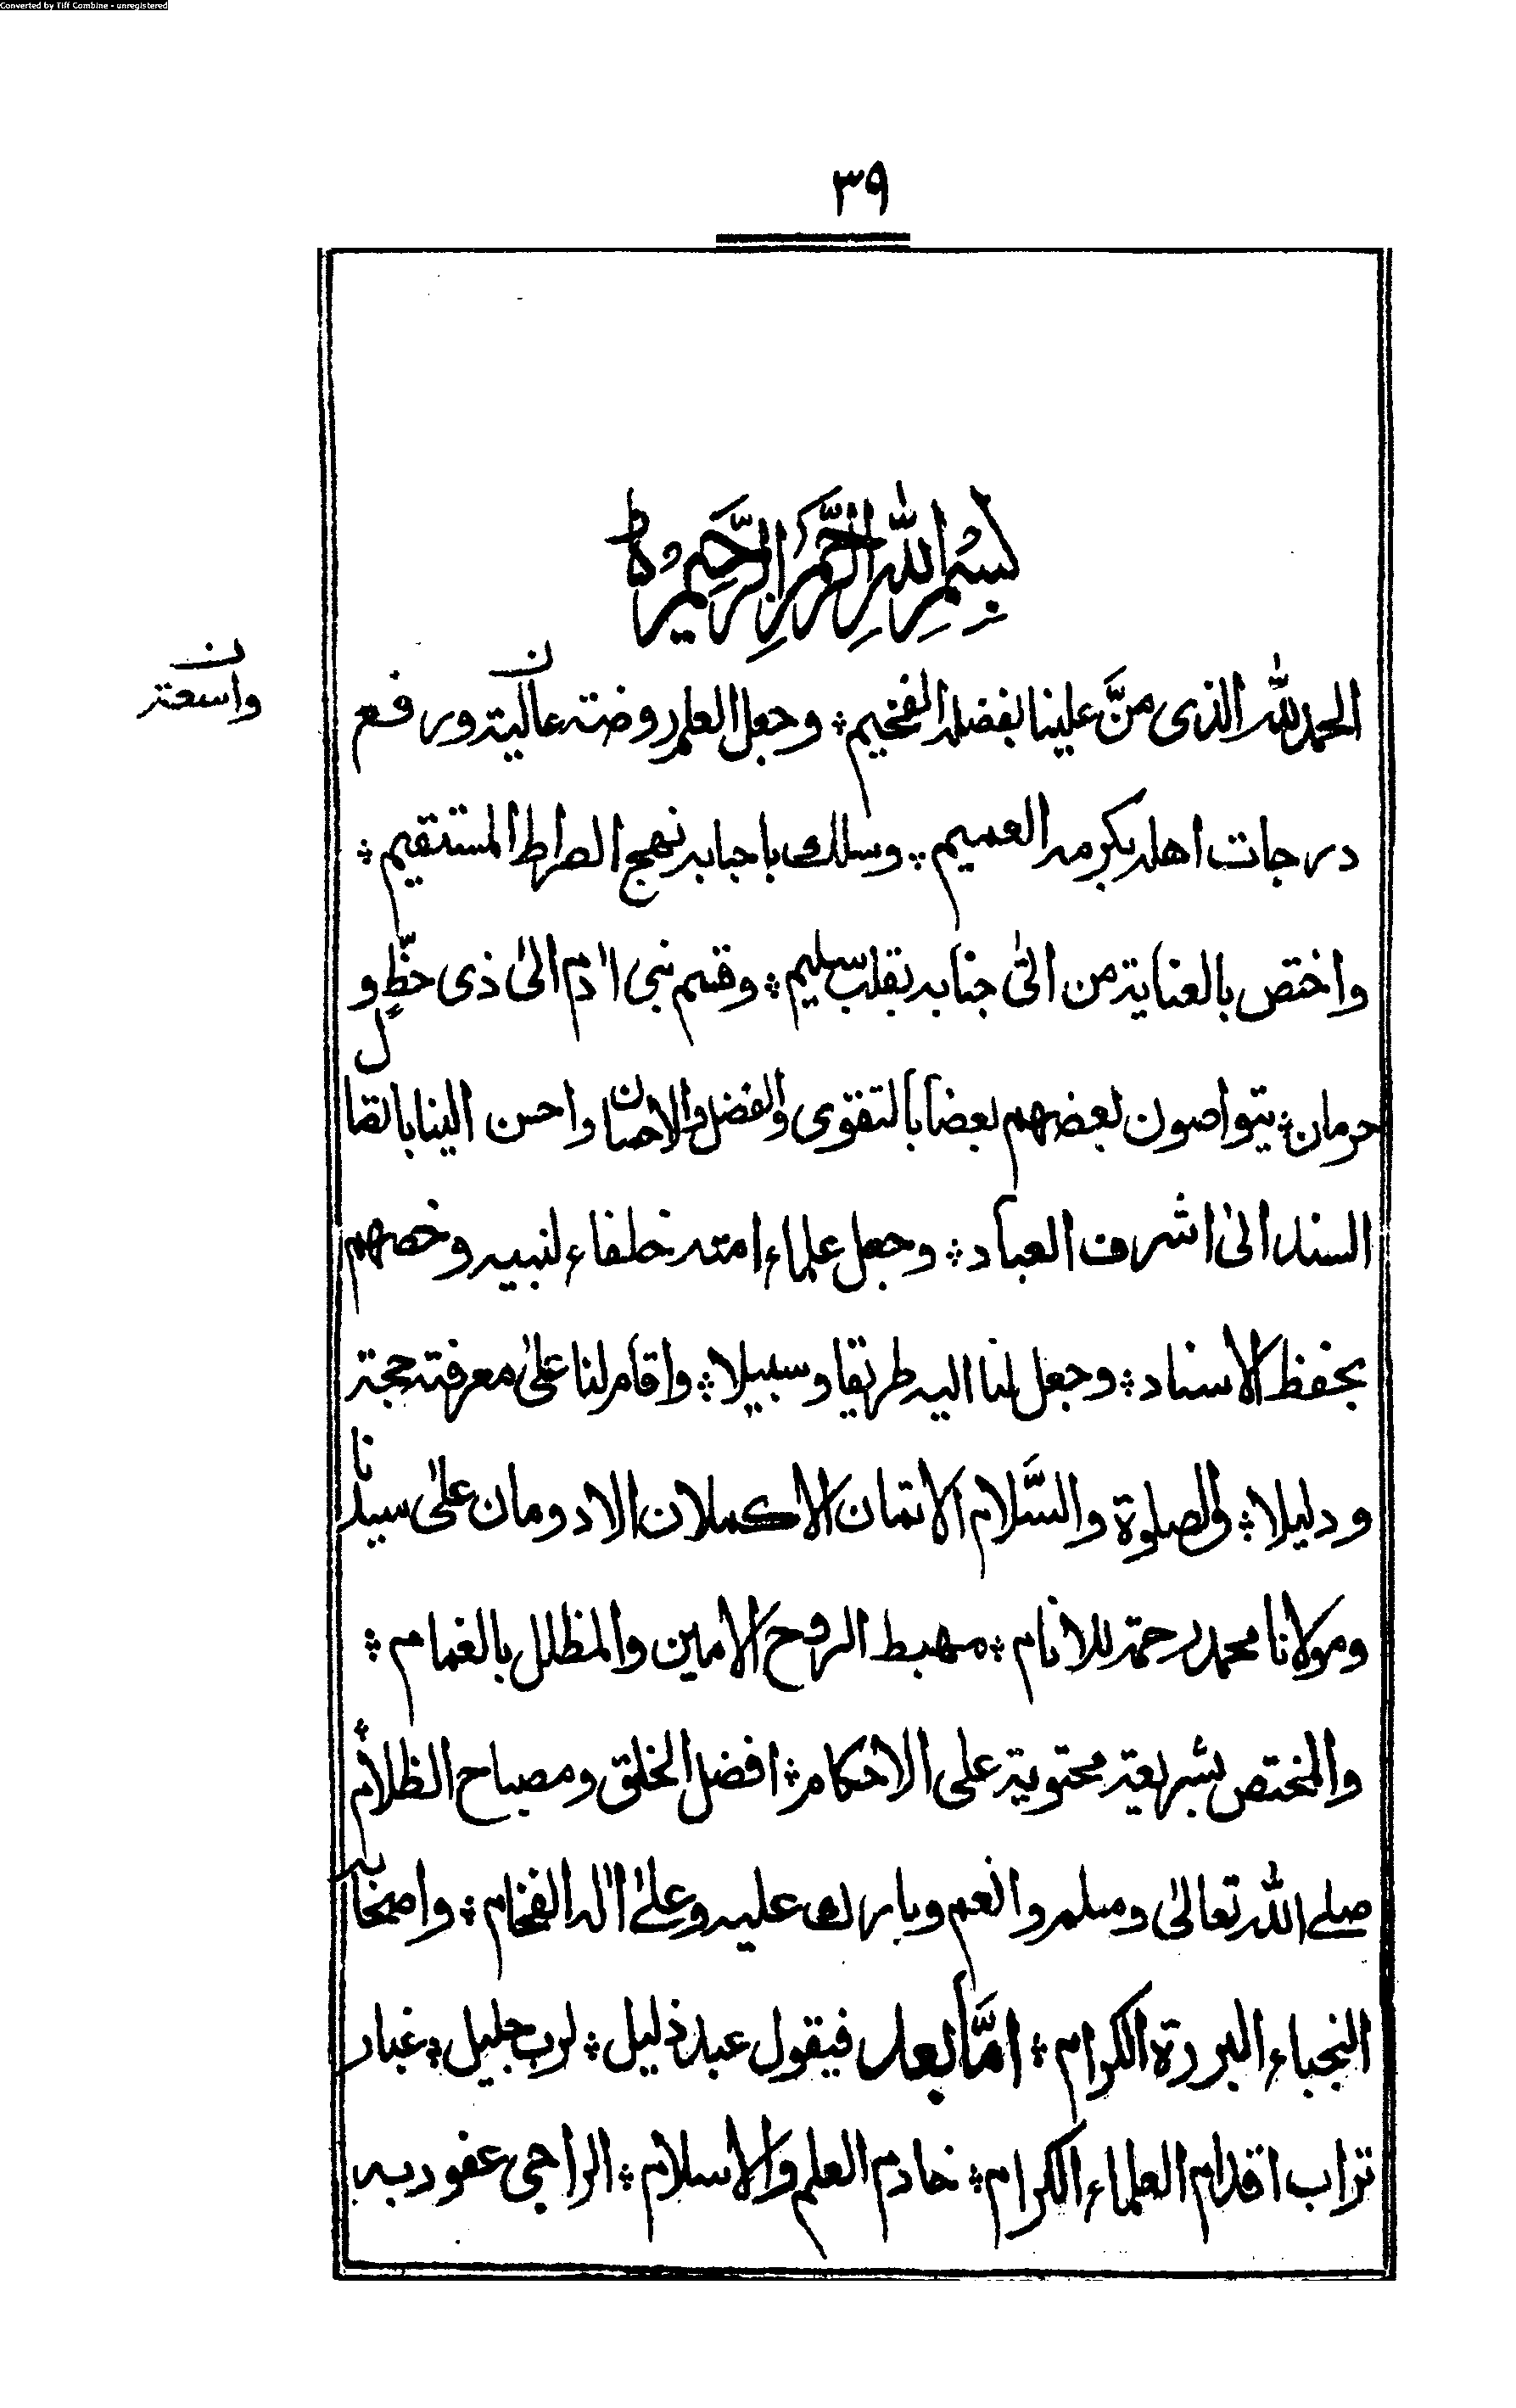 Converted by Tiff Combine - unregistered
٣٩
بِسْمِ اللّٰهِ الرَّحْمٰنِ الرَّحِيْمِ ط
الحمد لله الذى منَّ علينا بفضله الفخيم ؞ وجعل العلم روضته عالية ورفع
ن
واسعة
ن
درجات اهله بكرمه العميم ؞ وسلك باحبابه نهج الصراط المستقيم ؞
واختص بالعناية من اتىٰ جنابه بقلب سليم ؞ وقسم بنى اٰدم الىٰ ذى حظٍّ و
حرمان ؞ يتواصون بعضهم بعضا بالتقوى والفضل والاحسان واحسن الينا باتصال
السند الىٰ اشرف العباد ؞ وجعل علماء امته خلفاء لنبيه وخصهم
بحفظ الاسناد ؞ وجعل لنا اليه طريقا وسبيلا ؞ واقام لنا علىٰ معرفته حجة
ودليلا ؞ والصلوة والسَّلام الاتمان الاكملان الادومان علىٰ سيدنا
ومولانا محمد رحمة للانام ؞ مهبط الروح الامين والمظلل بالغمام ؞
والمختص بشريعة محتوية على الاحكام ؞ افضل الخلق ومصباح الظلام ؞
صلے الله تعالىٰ وسلم وانعم وبارك عليه وعلىٰ اٰله الفخام ؞ واصحابه
النجباء البررة الكرام ؞ امَّا بعد فيقول عبد ذليل ؞ لرب جليل ؞ غبار
تراب اقدام العلماء الكرام ؞ خادم العلم والاسلام ؞ الراجى عفو ربه